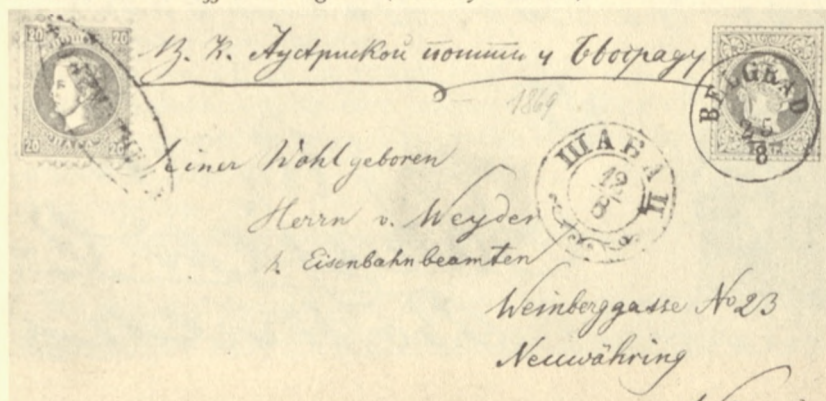 20 20
ПАРА
20 20
Ц. К. Аустриской пошти у Београду
1869
BELGRAD
25
8
ШАБАЦ
12
8
Seiner Wohlgeboren
Herrn v. Weyder
Eisenbahnbeamten
Weinberggasse No 23
Neuwähring